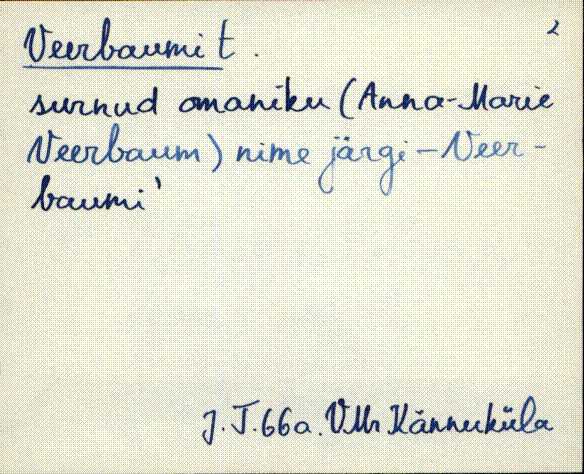 2
Veerbaumi t.
surnud omaniku (Anna-Marie
Veerbaum) nime järgi – Veer-
baumi'
J. T. 66a. VMr Kännuküla